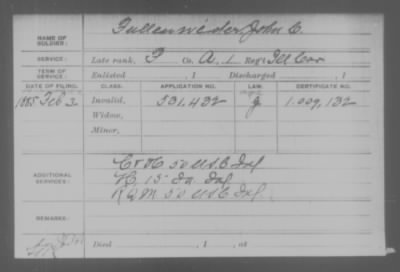 NAME OF SOLDIER: Fullenwider, John C.
SERVICE: Late rank, P Co. A, 1 Reg't Ill Cav
TERM OF SERVICE: Enlisted , 1 Discharged , 1
DATE OF FILING. CLASS. APPLICATION NO. LAW. CERTIFICATE NO.
1885 Feb 3 Invalid, 531,432 1.009,132
Widow,
Minor,
ADDITIONAL SERVICES: C & H 50 U.S.C. Inf
H, 15 Ia Inf
R.Q.M. 50 U.S.C. Inf.
REMARKS:
Died , 1 , at